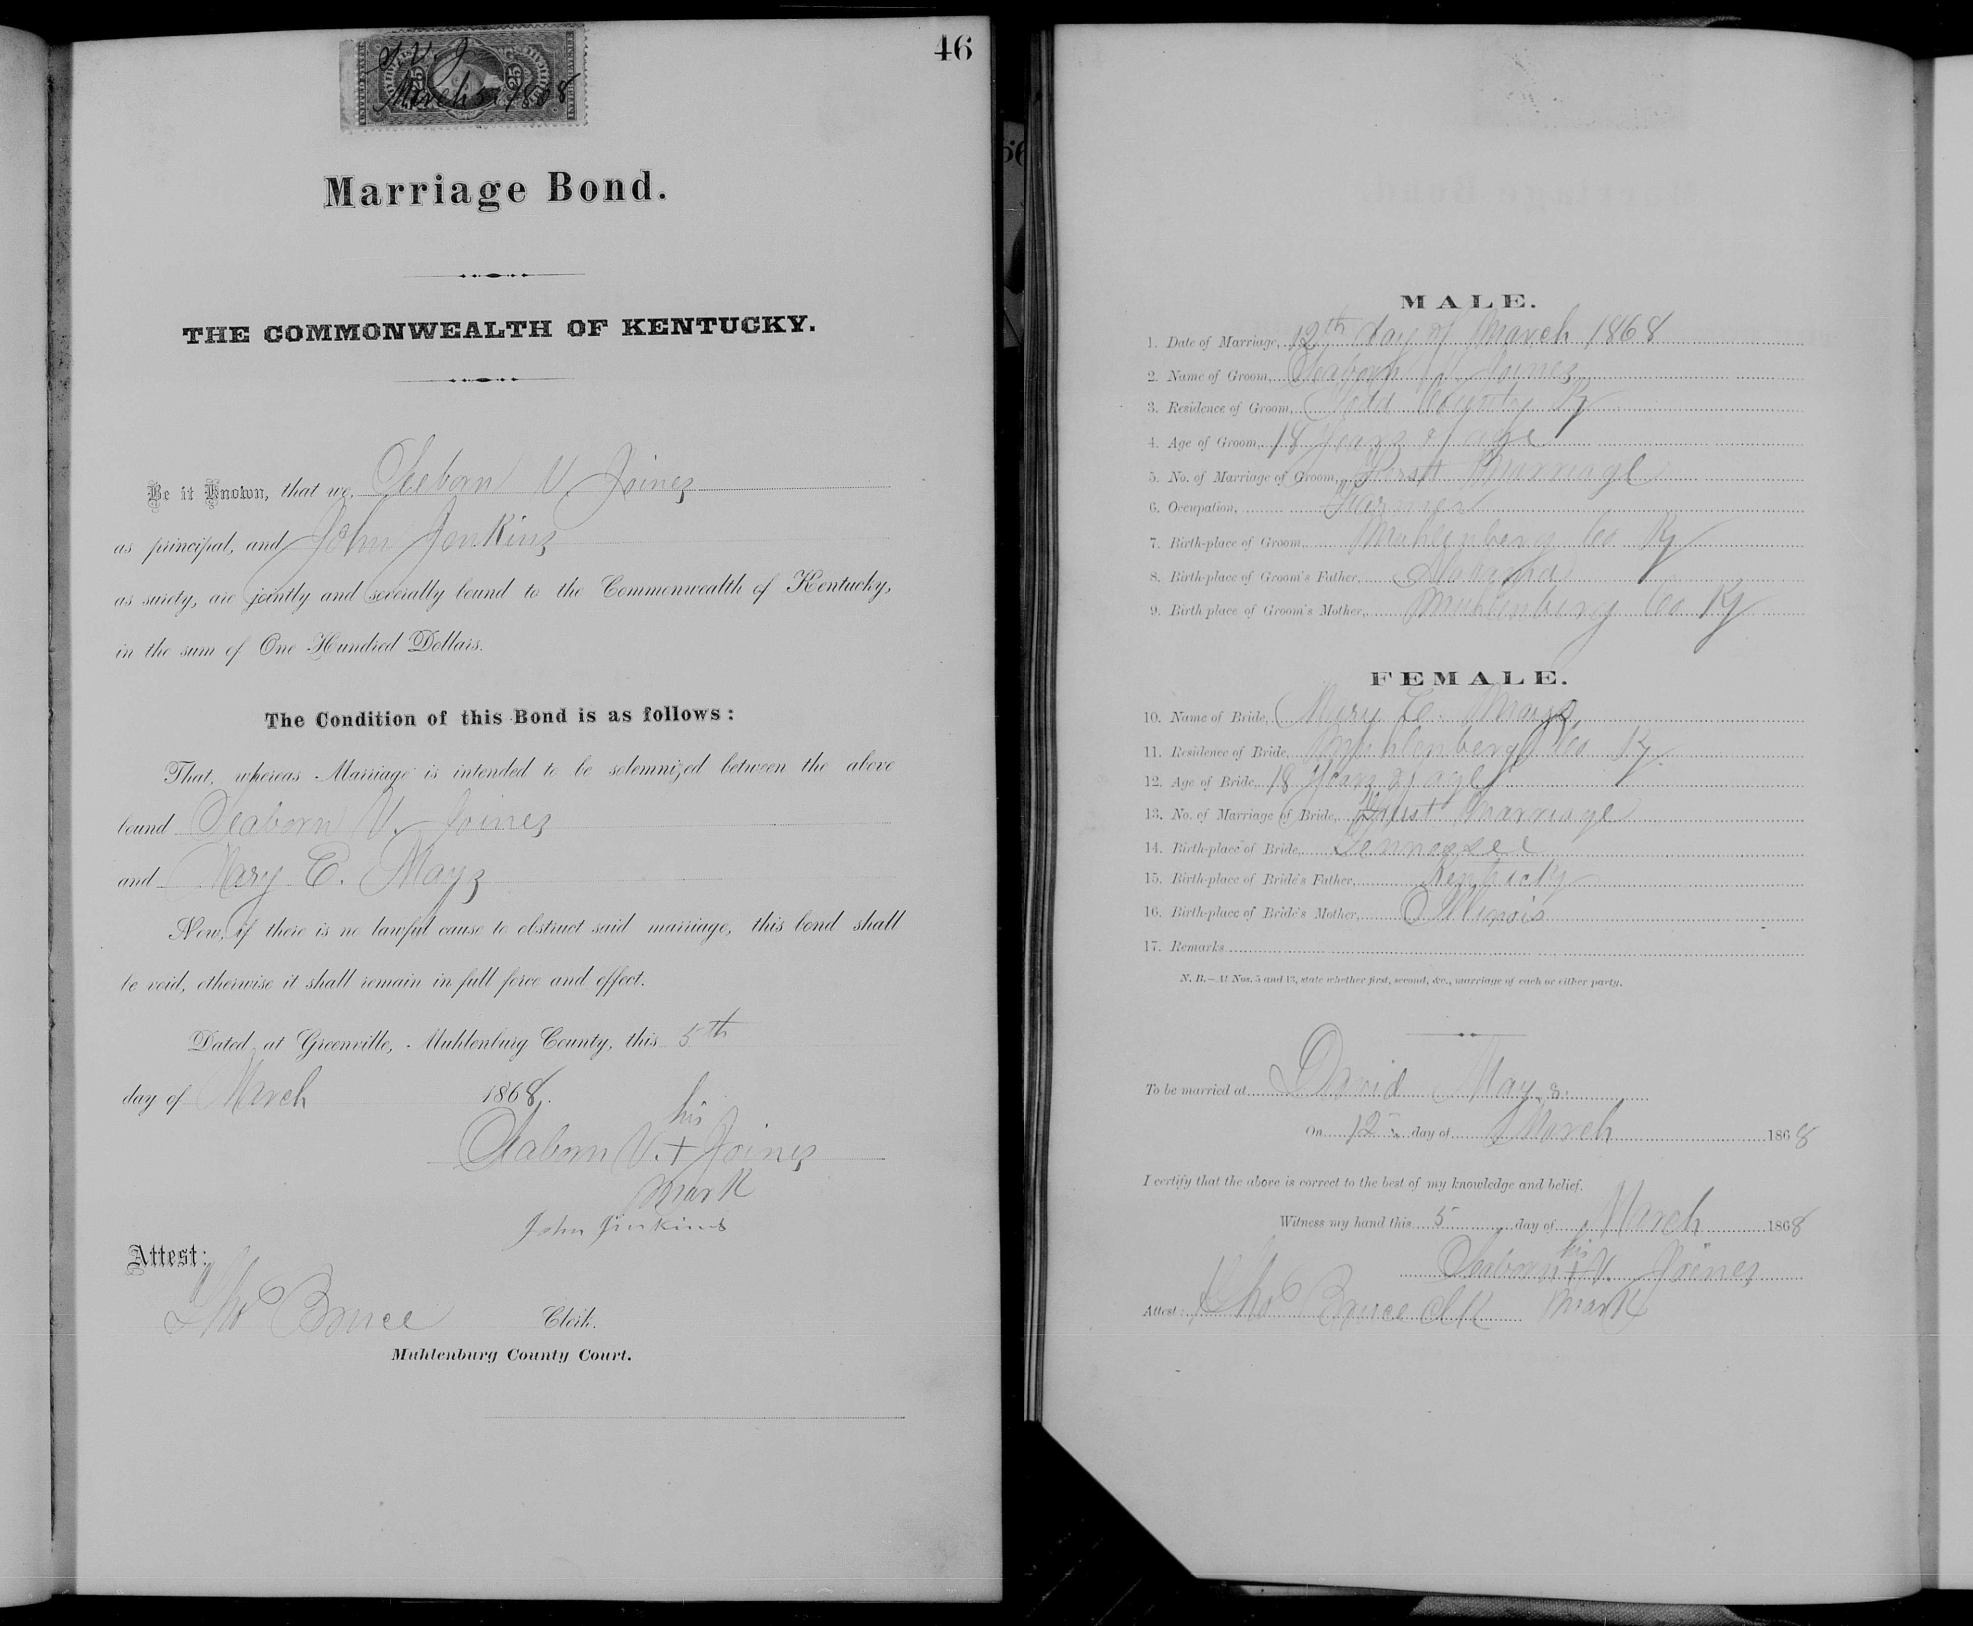 46
S. V. J
March 5 1868
25 25
Marriage Bond.
THE COMMONWEALTH OF KENTUCKY.
Be it Known, that we, Seborn V Joines
as principal, and John Jenkins
as surety, are jointly and severally bound to the Commonwealth of Kentucky,
in the sum of One Hundred Dollars.
The Condition of this Bond is as follows:
That, whereas Marriage is intended to be solemnized between the above
bound Seaborn V. Joines
and Mary E. Mays
Now, if there is no lawful cause to obstruct said marriage, this bond shall
be void, otherwise it shall remain in full force and effect.
Dated at Greenville, Muhlenburg County, this 5th
day of March 1868.
his
Seaborn V. + Joines
mark
John Jinkins
Attest:
Tho Bruce Clerk.
Muhlenburg County Court.
MALE.
1. Date of Marriage, 12th day of March 1868
2. Name of Groom, Seaborn V Joines
3. Residence of Groom, Todd County Ky
4. Age of Groom, 18 years of age
5. No. of Marriage of Groom, First Marriage
6. Occupation, Farmer
7. Birth-place of Groom, Muhlenberg Co Ky
8. Birth-place of Groom's Father, Alabama
9. Birth place of Groom's Mother, Muhlenberg Co Ky
FEMALE.
10. Name of Bride, Mary E. Mays
11. Residence of Bride, Muhlenberg Co Ky.
12. Age of Bride, 18 years of age
13. No. of Marriage of Bride, First Marriage
14. Birth-place of Bride, Tennessee
15. Birth-place of Bride's Father, Kentucky
16. Birth-place of Bride's Mother, Illinois
17. Remarks
N. B.—At Nos. 5 and 13, state whether first, second, &c., marriage of each or either party.
To be married at David Mays.
On 12 day of March 1868
I certify that the above is correct to the best of my knowledge and belief.
Witness my hand this 5 day of March 1868
his
Seaborn + V. Joines
Attest: Tho Bruce Clk mark